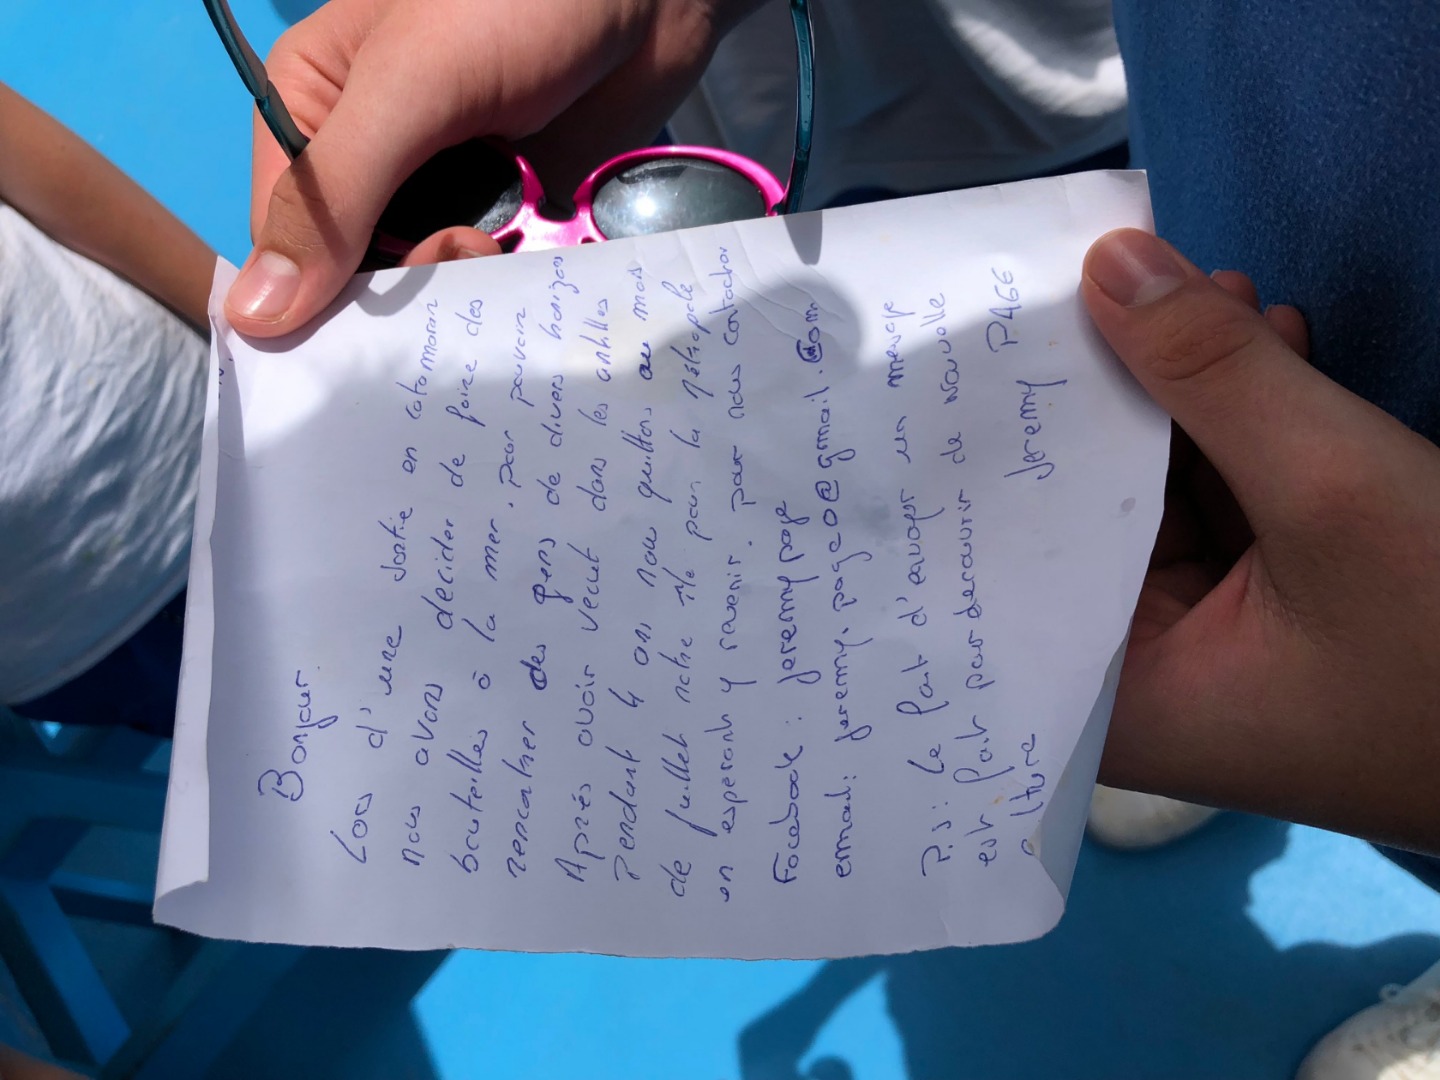 Bonjour.
Lors d'une sortie en catamaran
nous avons decider de faire des
bouteilles à la mer. pour pouvoir
rencontrer des gens de divers horizons
Après avoir vecut dans les antilles
Pendant 4 ans nou quittons au mois
de juillet notre île pour la Métropole
en esperant y revenir. pour nous contacter
Facebook : jeremy page
email: jeremy.page20@gmail.com
P.s: le fait d'envoyer un message
est fait pour decouvrir de nouvelle
culture
Jeremy PAGE